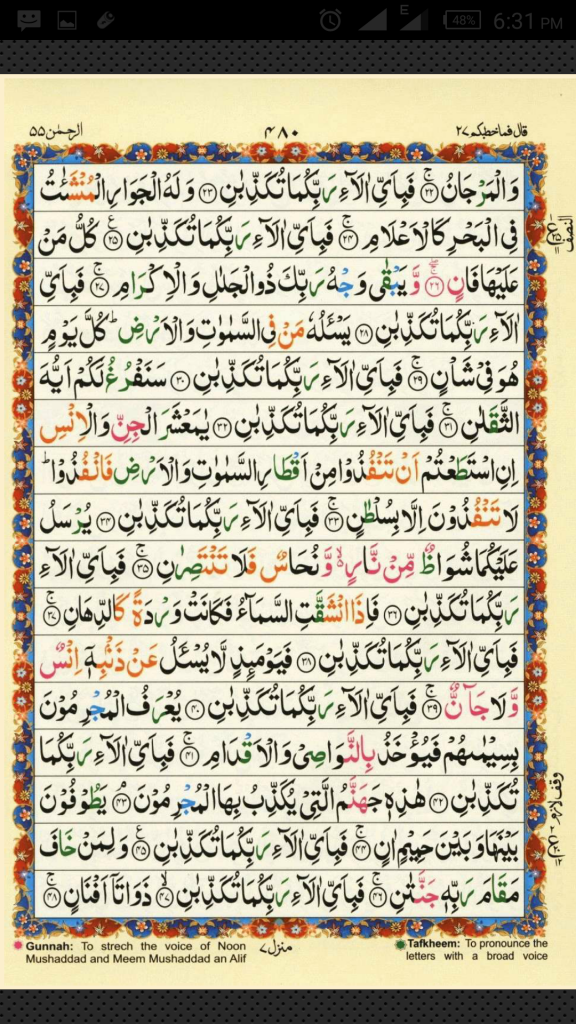 E 48% 6:31 PM
قال فماخطبكم ٢٧ ۴۸۰ الرحمٰن ۵۵
وَالۡمَرۡجَانُ ۚ‏﴿۲۲﴾ فَبِاَىِّ اٰلَاۤءِ رَبِّكُمَا تُكَذِّبٰنِ ﴿۲۳﴾ وَلَهُ الۡجَوَارِ الۡمُنۡشَئٰتُ
فِى الۡبَحۡرِ كَالۡاَعۡلَامِ ۚ‏﴿۲۴﴾ فَبِاَىِّ اٰلَاۤءِ رَبِّكُمَا تُكَذِّبٰنِ ﴿۲۵﴾ كُلُّ مَنۡ
النصف
عَلَيۡهَا فَانٍ ۖ‏ۚ‏﴿۲۶﴾ وَّيَبۡقٰى وَجۡهُ رَبِّكَ ذُو الۡجَلٰلِ وَالۡاِكۡرَامِ ۚ‏﴿۲۷﴾ فَبِاَىِّ
اٰلَاۤءِ رَبِّكُمَا تُكَذِّبٰنِ ﴿۲۸﴾ يَسۡـَٔـلُهٗ مَنۡ فِى السَّمٰوٰتِ وَالۡاَرۡضِؕ كُلَّ يَوۡمٍ
هُوَ فِىۡ شَاۡنٍ ۚ‏﴿۲۹﴾ فَبِاَىِّ اٰلَاۤءِ رَبِّكُمَا تُكَذِّبٰنِ ﴿۳۰﴾ سَنَفۡرُغُ لَكُمۡ اَيُّهَ
الثَّقَلٰنِ ۚ‏﴿۳۱﴾ فَبِاَىِّ اٰلَاۤءِ رَبِّكُمَا تُكَذِّبٰنِ ﴿۳۲﴾ يٰمَعۡشَرَ الۡجِنِّ وَالۡاِنۡسِ
اِنِ اسۡتَطَعۡتُمۡ اَنۡ تَنۡفُذُوۡا مِنۡ اَقۡطَارِ السَّمٰوٰتِ وَالۡاَرۡضِ فَانْفُذُوۡاؕ
لَا تَنۡفُذُوۡنَ اِلَّا بِسُلۡطٰنٍ‌ۚ‏﴿۳۳﴾ فَبِاَىِّ اٰلَاۤءِ رَبِّكُمَا تُكَذِّبٰنِ ﴿۳۴﴾ يُرۡسَلُ
عَلَيۡكُمَا شُوَاظٌ مِّنۡ نَّارٍ ۙ وَّنُحَاسٌ فَلَا تَنۡتَصِرٰنِ‌ۚ‏﴿۳۵﴾ فَبِاَىِّ اٰلَاۤءِ
رَبِّكُمَا تُكَذِّبٰنِ ﴿۳۶﴾ فَاِذَا انْشَقَّتِ السَّمَآءُ فَكَانَتۡ وَرۡدَةً كَالدِّهَانِ‌ۚ‏﴿۳۷﴾
فَبِاَىِّ اٰلَاۤءِ رَبِّكُمَا تُكَذِّبٰنِ ﴿۳۸﴾ فَيَوۡمَـئِذٍ لَّا يُسۡـَٔـلُ عَنۡ ذَنۡۢبِهٖۤ اِنۡسٌ
وَّلَا جَآنٌّ‌ۚ‏﴿۳۹﴾ فَبِاَىِّ اٰلَاۤءِ رَبِّكُمَا تُكَذِّبٰنِ ﴿۴۰﴾ يُعۡرَفُ الۡمُجۡرِمُوۡنَ
بِسِيۡمٰهُمۡ فَيُؤۡخَذُ بِالنَّوَاصِىۡ وَ الۡاَقۡدَامِ‌ۚ‏﴿۴۱﴾ فَبِاَىِّ اٰلَاۤءِ رَبِّكُمَا
تُكَذِّبٰنِ ﴿۴۲﴾ هٰذِهٖ جَهَنَّمُ الَّتِىۡ يُكَذِّبُ بِهَا الۡمُجۡرِمُوۡنَ‌ۘ‏﴿۴۳﴾ يَطُوۡفُوۡنَ
وقف لازم
بَيۡنَهَا وَبَيۡنَ حَمِيۡمٍ اٰنٍ‌ۚ‏﴿۴۴﴾ فَبِاَىِّ اٰلَاۤءِ رَبِّكُمَا تُكَذِّبٰنِ ﴿۴۵﴾ وَلِمَنۡ خَافَ
مَقَامَ رَبِّهٖ جَنَّتٰنِ‌ۚ‏﴿۴۶﴾ فَبِاَىِّ اٰلَاۤءِ رَبِّكُمَا تُكَذِّبٰنِۙ‏﴿۴۷﴾ ذَوَاتَاۤ اَفۡنَانٍ‌ۚ‏﴿۴۸﴾
منزل ۷
Gunnah: To strech the voice of Noon
Mushaddad and Meem Mushaddad an Alif
Tafkheem: To pronounce the
letters with a broad voice